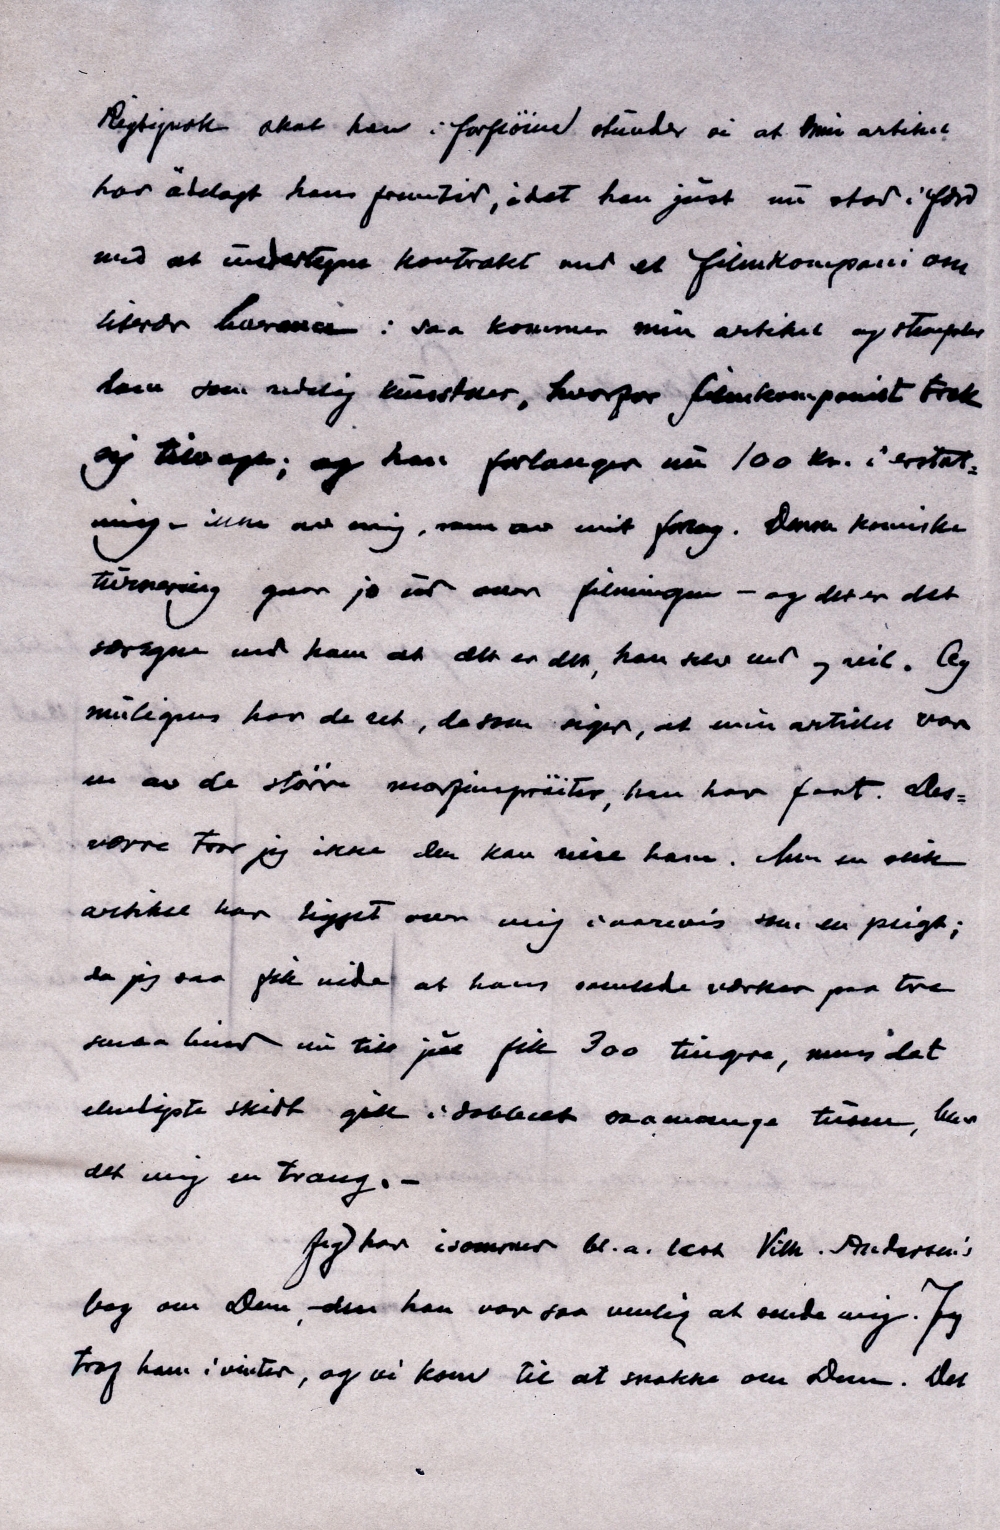 skal han i forfløine stunder si at min artikel
har ödelagt hans fremtid, idet han just nu stod i färd
med at undertegne kontrakt med et filmkompani om
literær : saa kommer min artikel og stempler
ham som udelig kunstner, hvorfor filmkompaniet trak
sig tilbage; og han forlanger nu 100 kr. i erstat=
ning – ikke av mig, men av mit forlag. Denne komiske
turnering gaar jo ud over filmingen – og det er det
særegne med ham at det er det, han selv ved og vil. Og
muligens har de ret, de som siger, at min artikel var
en av de större morfinspröiter, han har faat. Des=
værre tror jeg ikke den kan reise ham. Men en slik
artikel har ligget over mig i aarevis som en pligt;
da jeg saa fik vide at hans samlede værker paa tre
smaa bind nu til jul fik 300 tingere, mens det
elendigste skidt gik i dobbelt saamange tusen, blev
det mig en trang. –
Jeg har isommer bl.a. læst Vilh. Andersen's
bog om Dem, –den han var saa venlig at sende mig. Jeg
traf ham i vinter, og vi kom til at snakke om Dem. Det